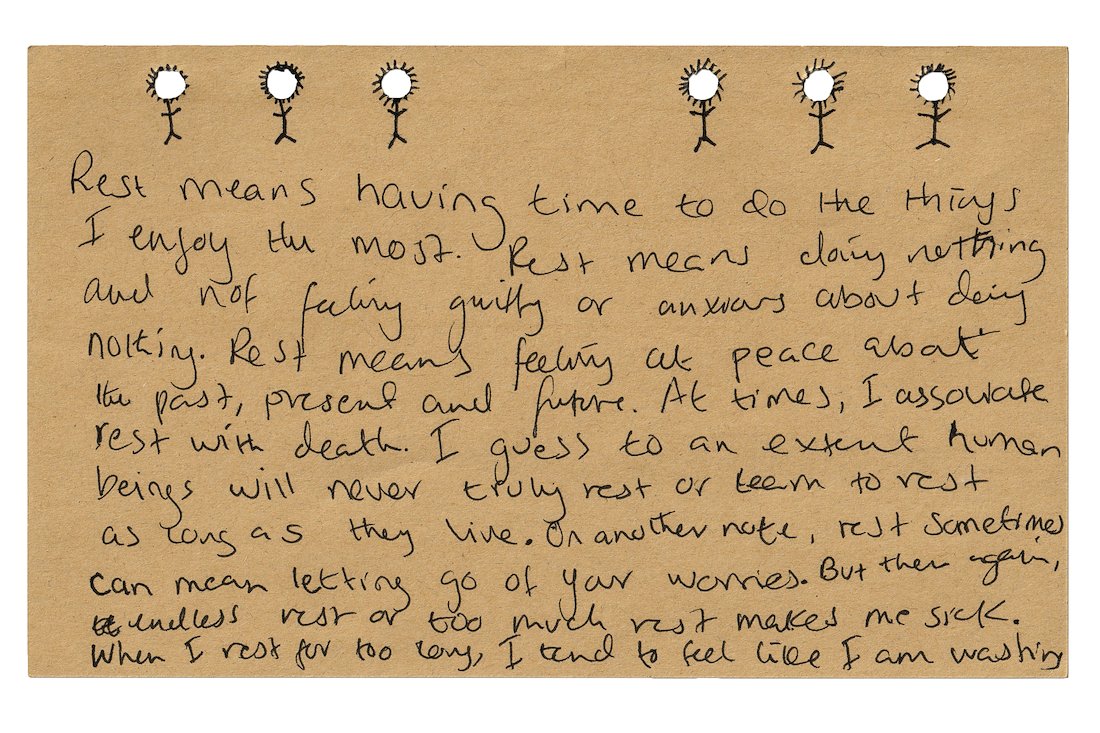 Rest means having time to do the things
I enjoy the most. Rest means doing nothing
and not feeling guilty or anxious about doing
nothing. Rest means feeling at peace about
the past, present and future. At times, I associate
rest with death. I guess to an extent human
beings will never truly rest or learn to rest
as long as they live. On another note, rest sometimes
can mean letting go of your worries. But then again,
endless rest or too much rest makes me sick.
When I rest for too long, I tend to feel like I am washing